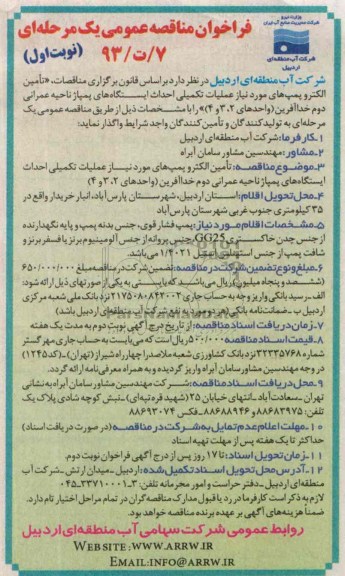 وزارت نیرو
شرکت مدیریت منابع آب ایران
شرکت آب منطقه‌ای
اردبیل
فراخوان مناقصه عمومی یک مرحله‌ای
۷/ت/۹۳ (نوبت اول)
شرکت آب منطقه‌ای اردبیل در نظر دارد بر اساس قانون برگزاری مناقصات، «تأمین
الکتروپمپ‌های مورد نیاز عملیات تکمیلی احداث ایستگاه‌های پمپاژ ناحیه عمرانی
دوم خداآفرین (واحدهای ۲، ۳ و ۴)» را با مشخصات ذیل از طریق مناقصه عمومی یک
مرحله‌ای به تولیدکنندگان و تأمین‌کنندگان واجد شرایط واگذار نماید:
۱ـ کارفرما: شرکت آب منطقه‌ای اردبیل
۲ـ مشاور: مهندسین مشاور سامان آبراه
۳ـ موضوع مناقصه: تأمین الکتروپمپ‌های مورد نیاز عملیات تکمیلی احداث
ایستگاه‌های پمپاژ ناحیه عمرانی دوم خداآفرین (واحدهای ۲، ۳ و ۴)
۴ـ محل تحویل اقلام: استان اردبیل، شهرستان پارس‌آباد، انبار خریدار واقع در
۳۵ کیلومتری جنوب غربی شهرستان پارس‌آباد
۵ـ مشخصات اقلام مورد نیاز: پمپ فشار قوی، جنس بدنه پمپ و پایه نگهدارنده
از جنس چدن خاکستری GG25، جنس پروانه از جنس آلومینیوم برنز یا فسفر برنز و
شافت پمپ از جنس استیل ۱/۴۰۲۱ می‌باشد.
۶ـ مبلغ و نوع تضمین شرکت در مناقصه: تضمین شرکت در مناقصه مبلغ ۶۵۰/۰۰۰/۰۰۰
(ششصد و پنجاه میلیون) ریال می‌باشد که بایستی به یکی از صورتهای ذیل ارائه شود:
الف ـ رسید بانکی واریز وجه به حساب جاری ۲۱۷۵۰۸۰۸۴۲۰۰۲ نزد بانک ملی شعبه مرکزی
اردبیل ب ـ ضمانت‌نامه بانکی (هر دو مورد به نفع شرکت آب منطقه‌ای اردبیل باشد)
۷ـ زمان دریافت اسناد مناقصه: از تاریخ درج آگهی نوبت دوم به مدت یک هفته
۸ـ قیمت اسناد مناقصه: ۵۰۰/۰۰۰ ریال است که می‌بایست به حساب جاری مهر گستر
شماره ۲۳۲۳۵۷۶۸ نزد بانک کشاورزی شعبه ملاصدرا چهارراه شیراز (تهران) ـ (کد ۱۲۴۵)
در وجه مهندسین مشاور سامان آبراه واریز گردیده و به همراه معرفی‌نامه ارائه گردد.
۹ـ محل دریافت اسناد مناقصه: شرکت مهندسین مشاور سامان آبراه به نشانی
تهران ـ سعادت‌آباد ـ انتهای خیابان ۲۵ (شهید قره‌تپه‌ای) ـ نبش کوچه شادی پلاک یک
تلفن: ۸۸۶۸۳۹۷۵ و ۸۸۶۸۸۹۴۶ ـ فکس ۸۸۶۹۲۰۷۴
۱۰ـ مهلت اعلام عدم تمایل به شرکت در مناقصه: (در صورت دریافت اسناد)
حداکثر تا یک هفته پس از مهلت تهیه اسناد
۱۱ـ زمان تحویل اسناد: تا ۱۷ روز پس از درج آگهی فراخوان نوبت دوم.
۱۲ـ آدرس محل تحویل اسناد تکمیل شده: اردبیل ـ میدان ارتش ـ شرکت آب
منطقه‌ای اردبیل ـ دفتر حراست و امور محرمانه تلفن: ۳ـ۳۳۷۱۰۰۰۱ـ۰۴۵
لازم به ذکر است کارفرما در رد یا قبول مدارک مناقصه‌گران در تمام مراحل اختیار تام دارد.
ضمناً هزینه‌های آگهی بر عهده برنده مناقصه خواهد بود.
روابط عمومی شرکت سهامی آب منطقه‌ای اردبیل
WEBSITE: WWW.ARRW.IR
EMAIL: INFO@ARRW.IR